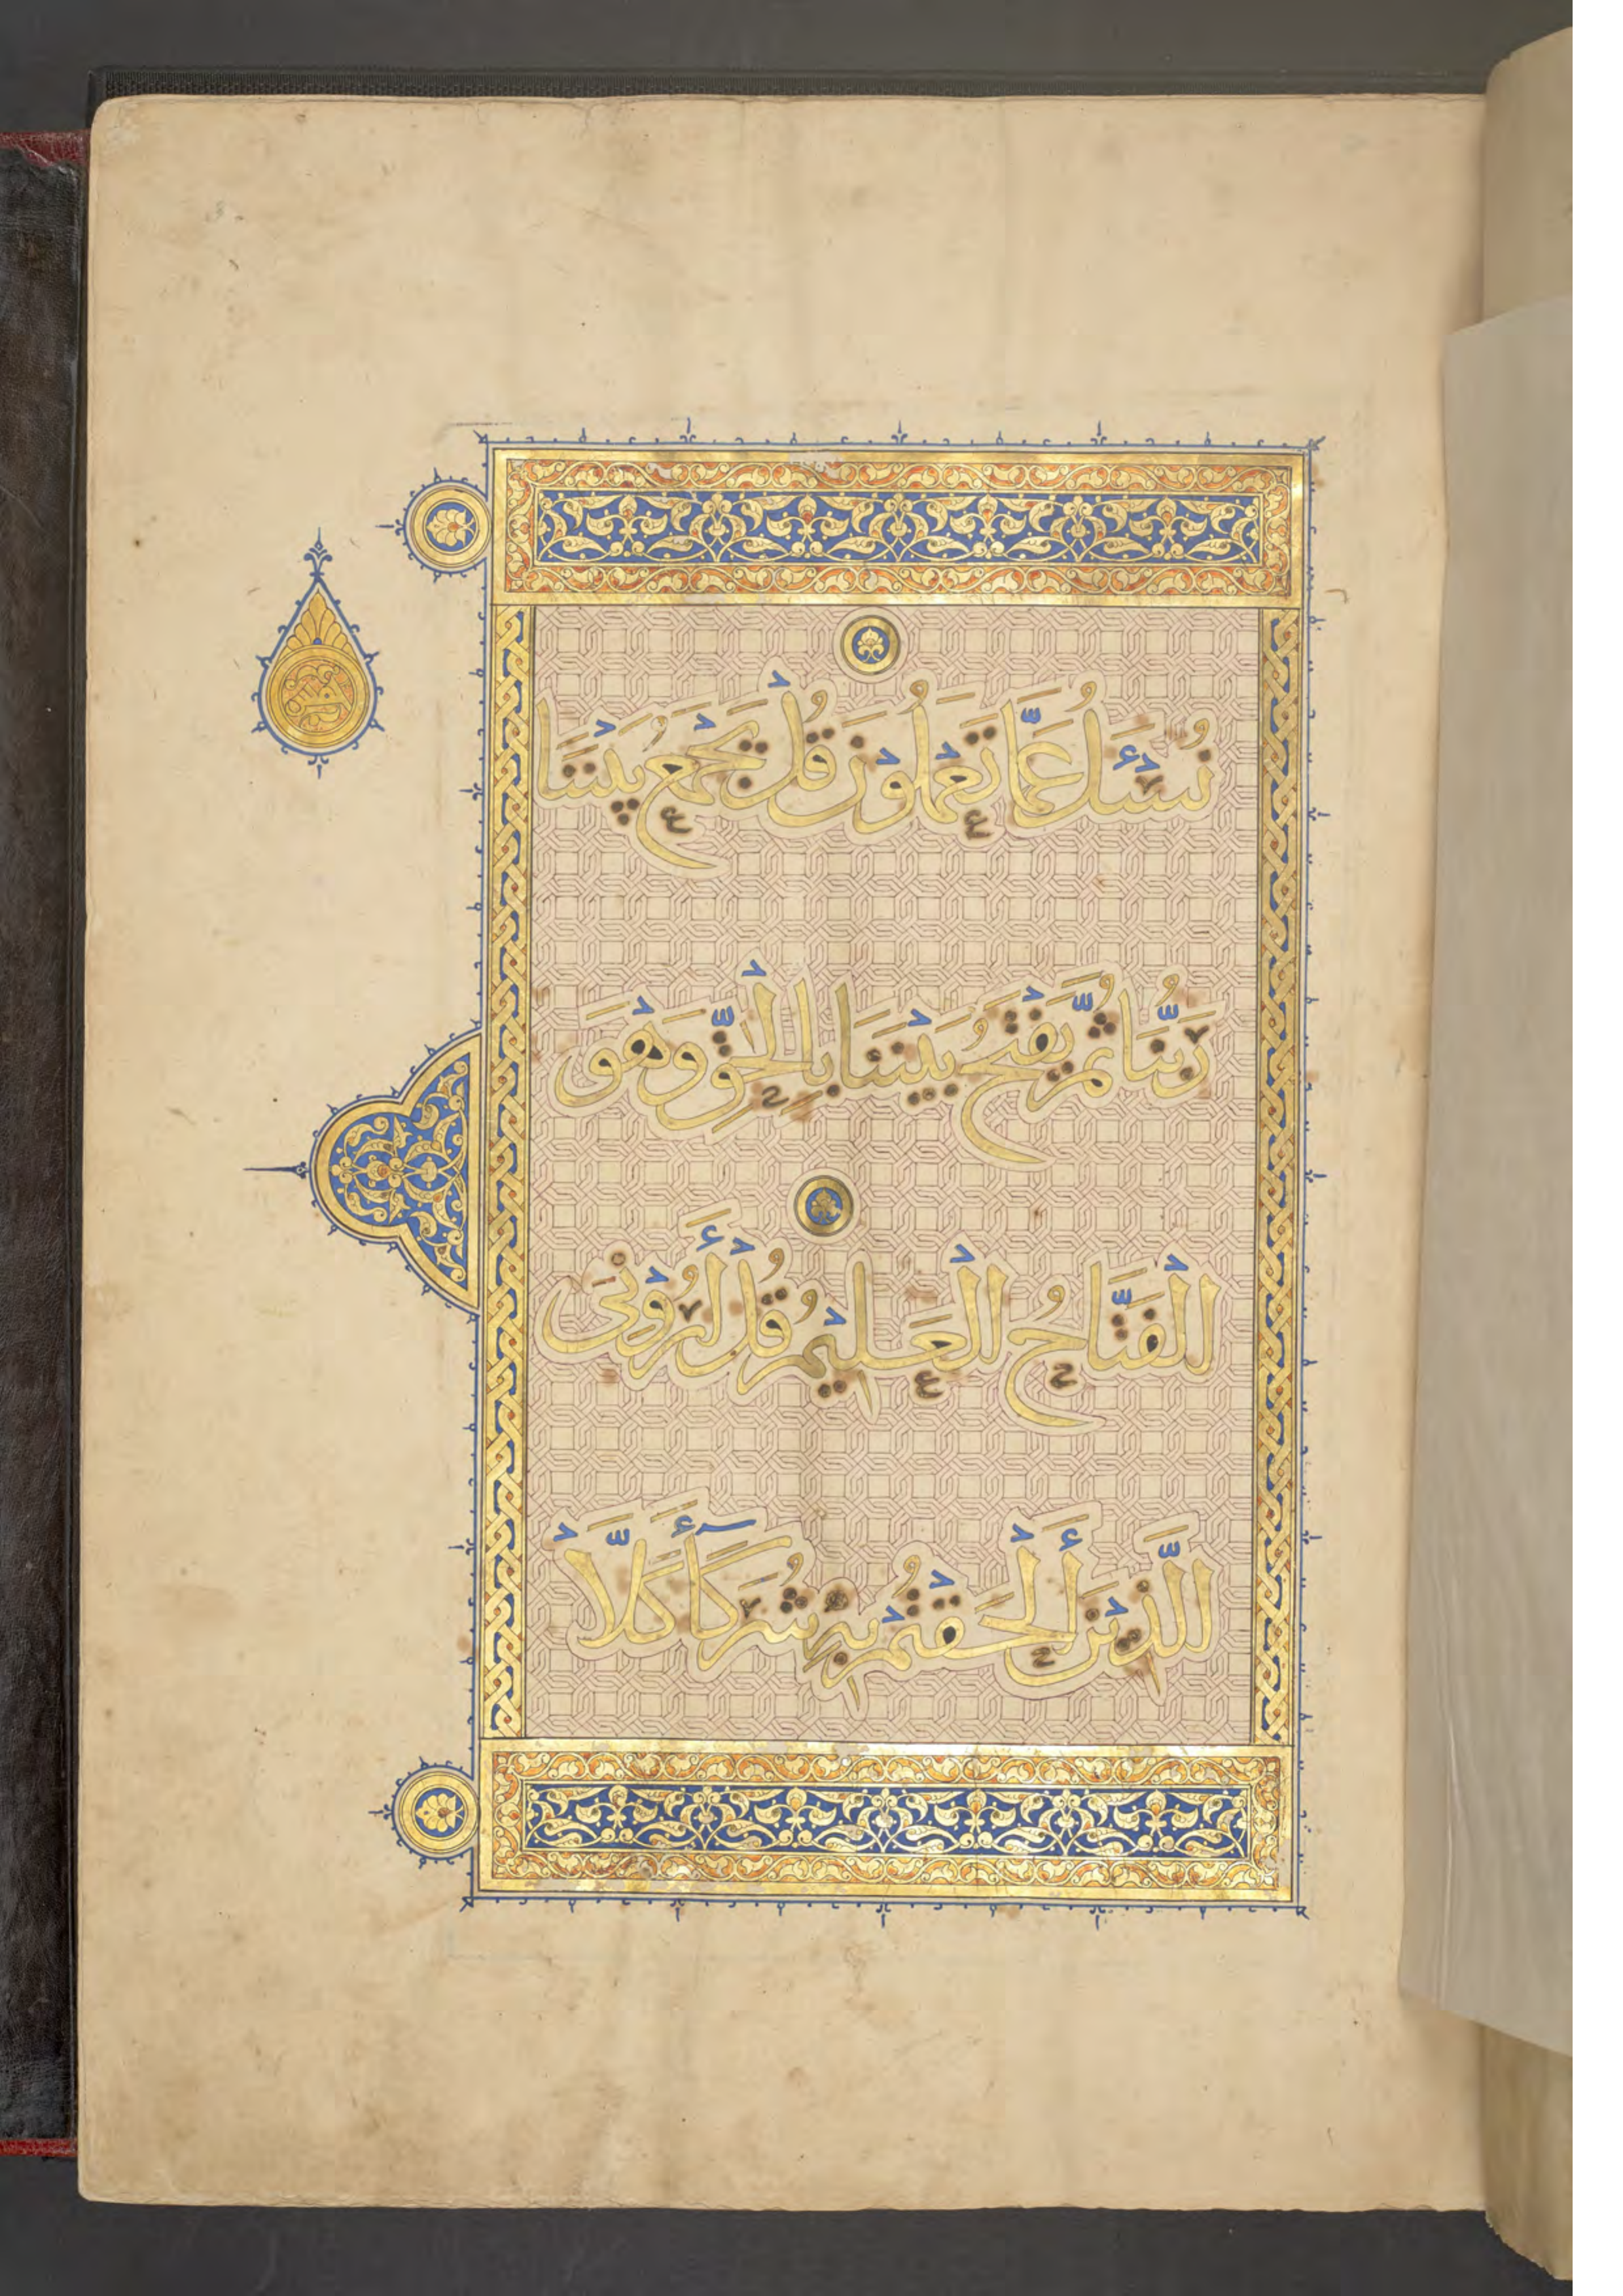 نُسْـَٔلُ عَمَّا تَعْمَلُونَ قُلْ يَجْمَعُ بَيْنَنَا
رَبُّنَا ثُمَّ يَفْتَحُ بَيْنَنَا بِالْحَقِّ وَهُوَ
الْفَتَّاحُ الْعَلِيمُ قُلْ أَرُونِىَ
الَّذِينَ أَلْحَقْتُمْ بِهِ شُرَكَآءَ كَلَّا